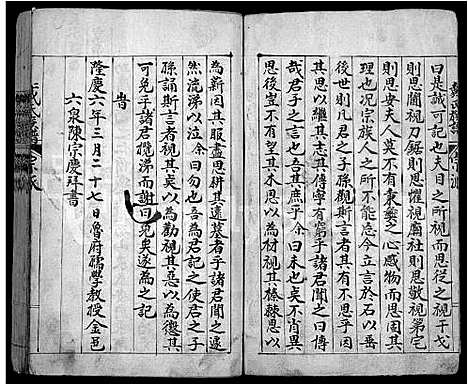 曰是誠可記也夫目之所視而思從之視干戈
則思鬬視刀鋸則思懼視廟社則思敬視第宅
則思安夫人莫不有秉彝之心感物而思固其
理也况宗族人之所能忘今立言于石以垂
後世則凡君之子孫觀斯言者其有不思乎因
其思以導志其傳寧有窮乎諸君聞之曰傳
哉君子之言也余曰未也矣不肖異
思後豈不有材木思以為材視其榛棘思以
為薪因其服盡思耕其遠墓者乎諸君聞之遂
然流涕以泣余曰勿也吾為君記之使君之子
孫誦斯言者視其矣以為勸視其惡以為懲其
可免乎諸君攬涕而謝曰免矣遂為之記
旹
隆慶六年三月二十七日魯府儒學教授金邑
六泉陳宗慶拜書